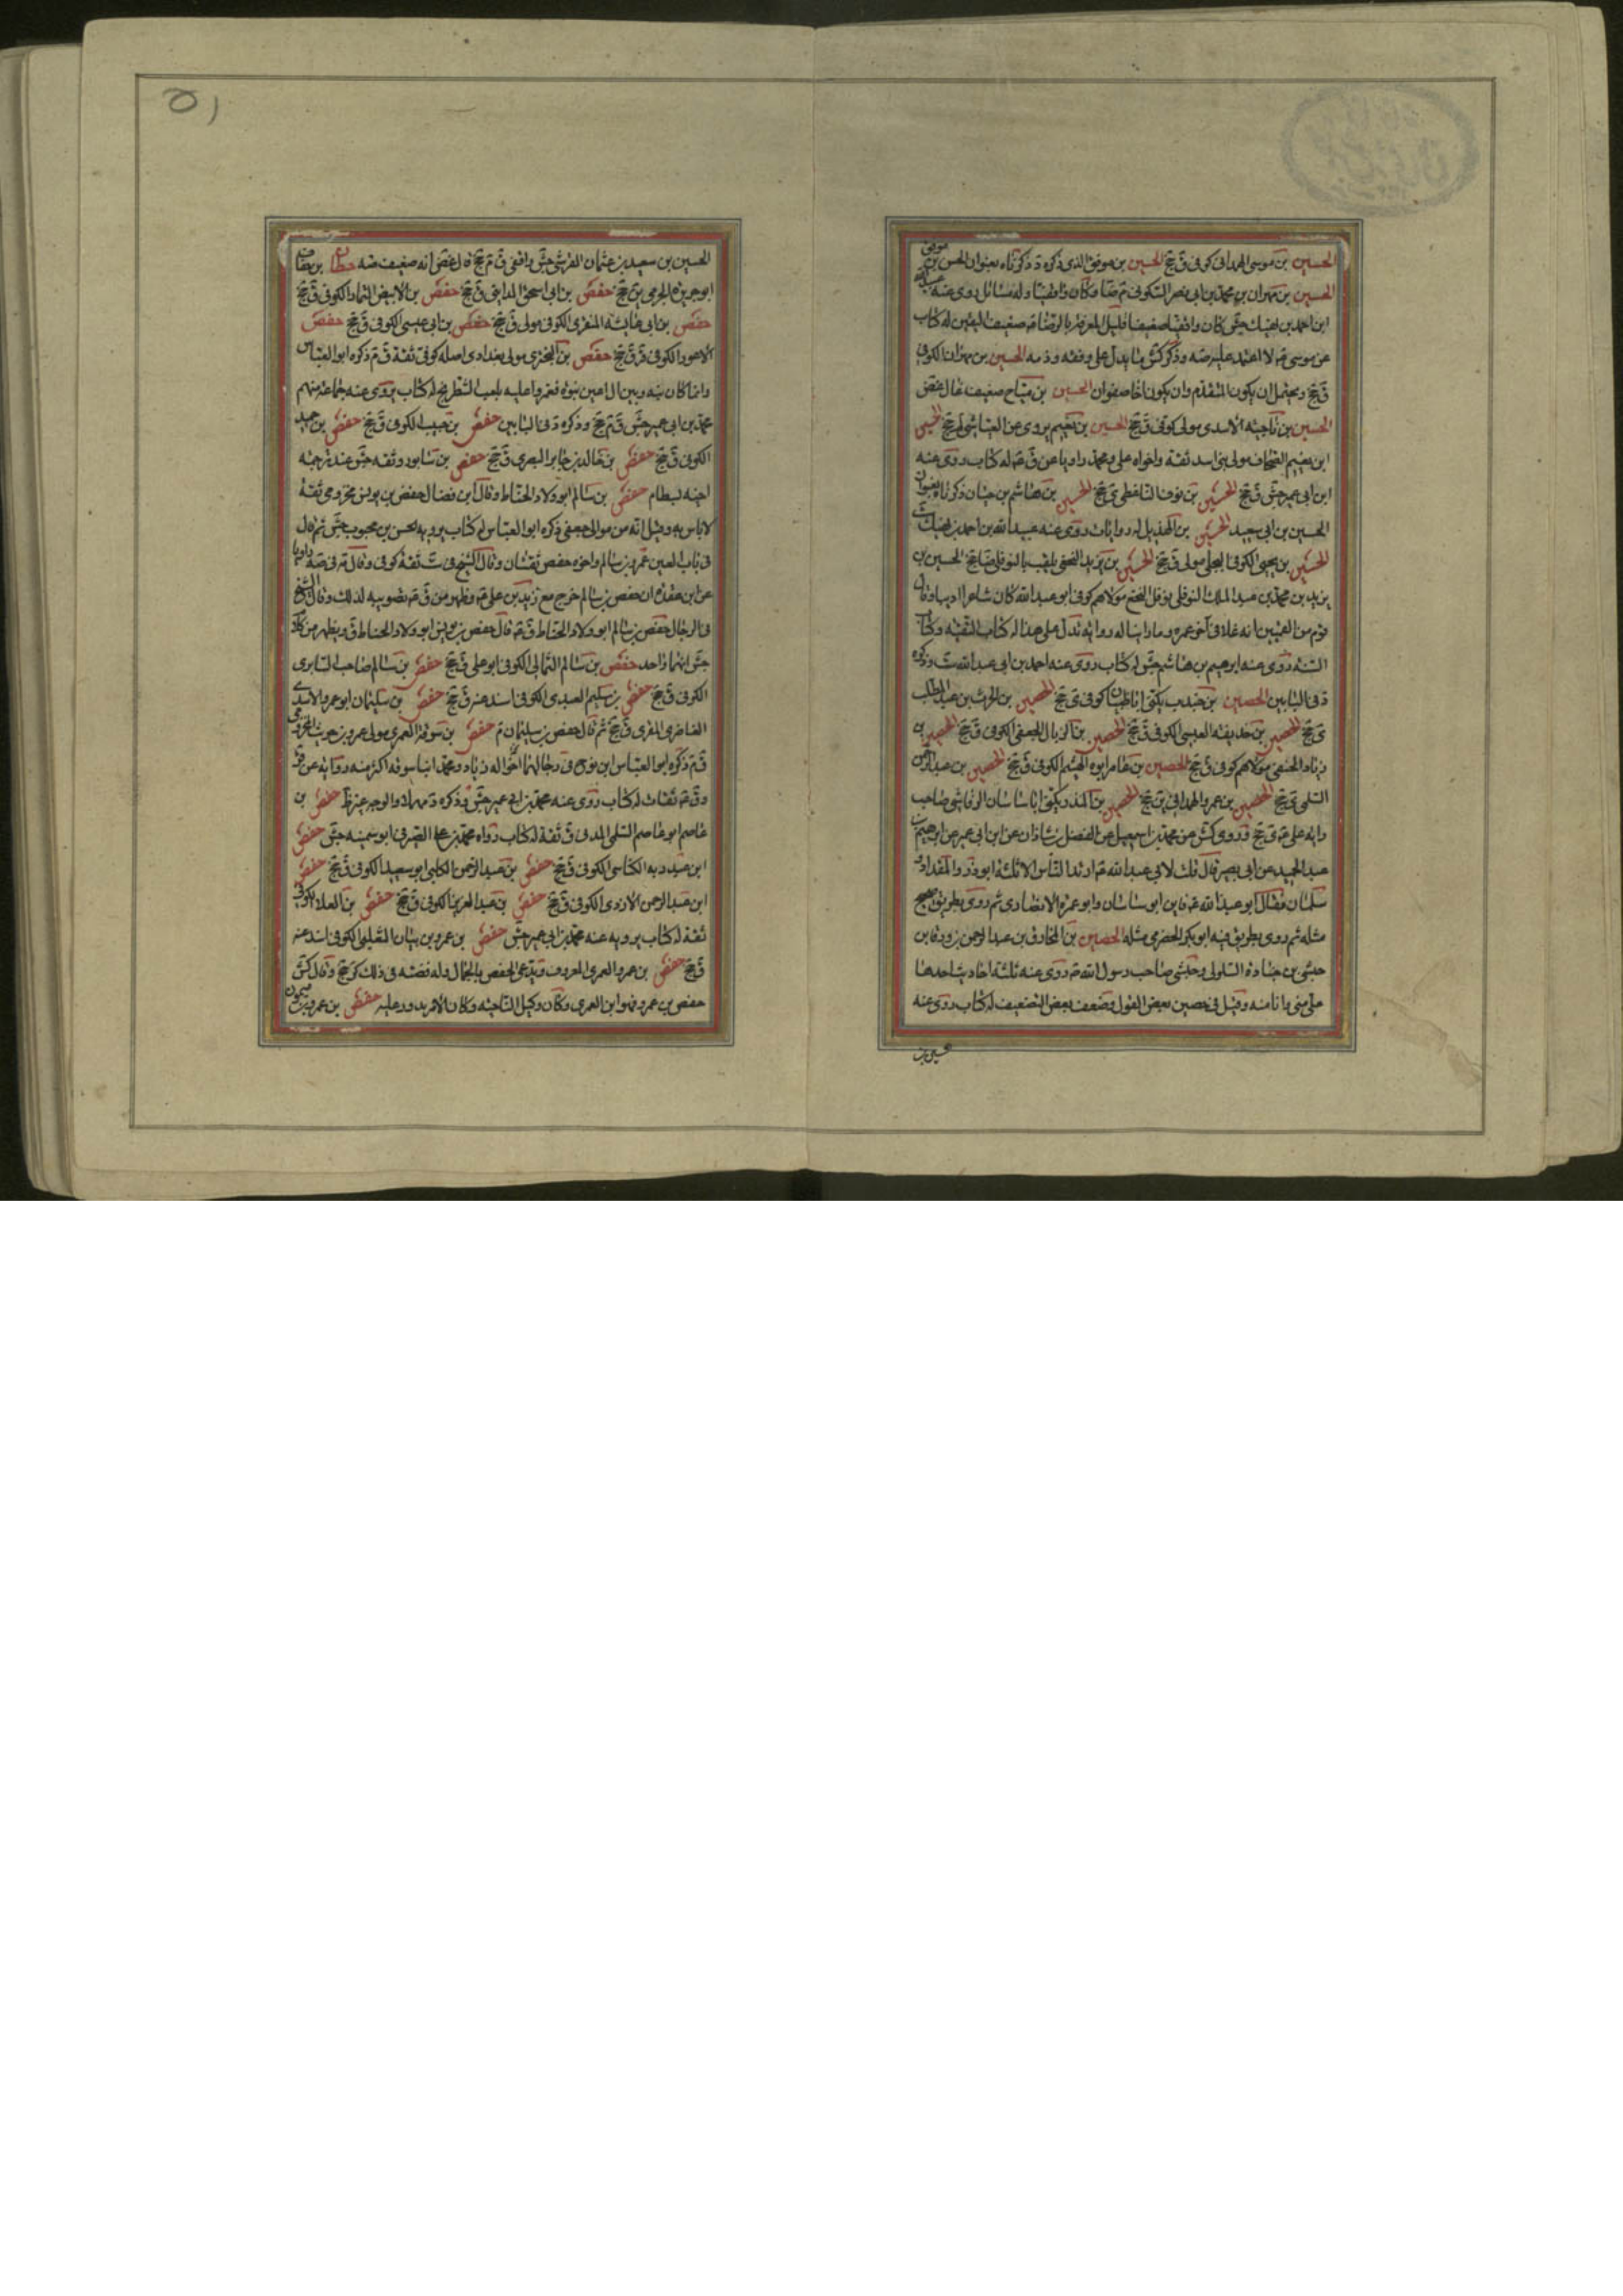 الحسين بن موسى الهمداني كوفي ق جخ الحسين بن موفق الذي ذكره د ذكرناه بعنوان الحسن بن موفق
الحسين بن مهران بن محمد بن ابي نصر السكوني م ضا وكان واقفيا وله مسائل روى عنه عبيد الله
ابن احمد بن نهيك جش كان واقفيا ضعيفا قليل المعرفة بالرضا ضعيف اليقين له كتاب
عن موسى لا اعتمد عليه صه وذكر كش ما يدل على وقفه وذمه الحسين بن مهران الكوفي
ق جخ ويحتمل ان يكون المتقدم وان يكون اخا صفوان الحسين بن مياح ضعيف غال غض
الحسين بن ناجية الاسدي مولى كوفي ق جخ الحسين بن نعيم يروي عن العياشي لم جخ الحسين
ابن نعيم الصحاف مولى بني اسد ثقة واخواه علي ومحمد رووا عن ق له كتاب روى عنه
ابن ابي عمير جش ق جخ الحسين بن هاشم بن حيان ذكرناه بعنوان
الحسين بن ابي سعيد الحسين بن الهذيل له روايات روى عنه عبيد الله بن احمد بن نهيك
الحسين بن يحيى الكوفي البجلي مولى ق جخ الحسين بن يزيد النخعي يلقب بالنوفلي ضا جخ الحسين بن
يزيد بن محمد بن عبد الملك النوفلي نوفل النخع مولاهم كوفي ابو عبد الله كان شاعرا اديبا وقال
قوم من القميين انه غلا في آخر عمره وما راينا له رواية تدل على هذا له كتاب التقية وكتاب
السنة روى عنه ابرهيم بن هاشم جش له كتاب روى عنه احمد بن ابي عبد الله ست وذكره
د في البابين الحصين بن جندب يكنى ابا ظبيان كوفي ى جخ الحصين بن الحرث بن عبد المطلب
ى جخ الحصين بن حذيفة العبسي الكوفي ق جخ الحصين بن الزبال الجعفي الكوفي ق جخ الحصين بن
زياد الحنفي مولاهم كوفي ق جخ الحصين بن عامر ابو الهيثم الكوفي ق جخ الحصين بن عبد الرحمن
السلمي ى جخ الحصين بن عمرو الهمداني ين جخ الحصين بن المنذر يكنى ابا ساسان الرقاشي صاحب
رايه على ى جخ وروى كش عن محمد بن اسمعيل عن الفضل بن شاذان عن ابن ابي عمير عن ابرهيم بن
عبد الحميد عن ابي بصير قال قلت لابي عبد الله ارتد الناس الا ثلثة ابو ذر والمقداد و
سلمان فقال ابو عبد الله فاين ابو ساسان وابو عمرة الانصاري ثم روى بطريق صحيح
مثله ثم روى بطريق فيه ابو بكر الحضرمي مثله الحصين بن المخارق بن عبد الرحمن بن ورقا بن
حبشي بن جنادة السلولي وحبشي صاحب رسول الله روى عنه ثلثة احاديث احدها
علي مني وانا منه وقيل في حصين بعض القول وضعف بعض التضعيف له كتاب روى عنه
الحسين بن
الحسين بن سعيد بن عثمان القرشي جش واقفي ق م جخ قال غض انه ضعيف صه حطان بن خفان
ابو جويرية الجرمي ين جخ حفص بن ابي اسحق المدايني ق جخ حفص بن الابيض التمار الكوفي ق جخ
حفص بن ابي عايشة المنقري الكوفي مولى ق جخ حفص بن ابي عيسى الكوفي ق جخ حفص
الاعور الكوفي قر ق جخ حفص بن البختري مولى بغدادي اصله كوفي ثقة ق م ذكره ابو العباس
وانما كان بينه وبين ال اعين نبوة فغمزوا عليه بلعب الشطرنج له كتاب يرويه عنه جماعة منهم
محمد بن ابي عمير جش ق م جخ وذكره د في البابين حفص بن حبيب الكوفي ق جخ حفص بن حميد
الكوفي ق جخ حفص بن خالد بن جابر البصري ق جخ حفص بن سابور وثقه جش عند ترجمة
اخيه بسطام حفص بن سالم ابو ولاد الحناط وقال ابن فضال حفص بن يونس مخزومي ثقة
لا باس به وقيل انه من موالي جعفي ذكره ابو العباس له كتاب يرويه الحسن بن محبوب جش ثم قال
في باب العين عمر بن سالم واخوه حفص ثقتان وقال الشيخ في ست ثقة كوفي وقال في صه راويا
عن ابن عقدة ان حفص بن سالم خرج مع زيد بن علي وظهر من ق تصويبه لذلك وقال الشيخ
في الرجال حفص بن سالم ابو ولاد الحناط ق ثم قال حفص بن يونس ابو ولاد الحناط ق ويظهر من كلام
جش انهما واحد حفص بن سالم الثمالي الكوفي ابو علي ق جخ حفص بن سالم صاحب السابري
الكوفي ق جخ حفص بن سليم العبدي الكوفي اسند عنه ق جخ حفص بن سليمان ابو عمرو الاسدي
الغاضري المقري ق جخ ثم قال حفص بن سليمان م حفص بن سوقة العمري مولى عمرو بن حريث المخزومي
ق م ذكره ابو العباس ابن نوح في رجالهما اخواه زياد ومحمد ابنا سوقة اكثر منه رواية عن قر
وق ثقات له كتاب روى عنه محمد بن ابي عمير جش حفص بن
عاصم ابو عاصم السلمي المدني ق ثقة له كتاب رواه محمد بن علي الصيرفي ابو سمينة جش حفص
ابن عبد ربه الكناسي الكوفي ق جخ حفص بن عبد الرحمن الكلبي ابو سعيد الكوفي ق جخ حفص
ابن عبد الرحمن الازدي الكوفي ق جخ حفص بن عبد العزيز الكوفي ق جخ حفص بن العلاء الكوفي
ثقة له كتاب يرويه عنه محمد بن ابي عمير جش حفص بن عمرو بن بيان التغلبي الكوفي اسند عنه
ق جخ حفص بن عمرو العمري المعروف ويدعى الحفص بالجمال وله قصة في ذلك كر جخ وقال كش
حفص بن عمرو هو ابن العمري وكان وكيل الناحية وكان الامر يدور عليه حفص بن عمرو بن ميمون